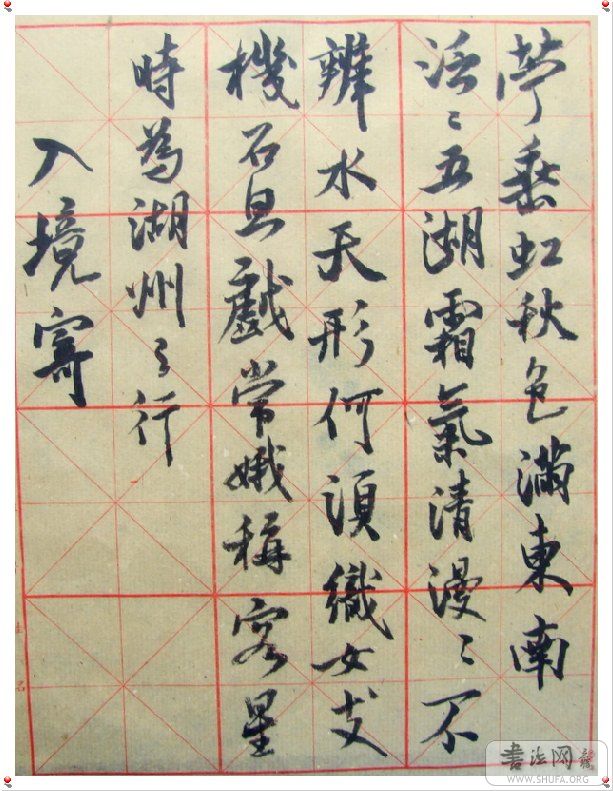 亭垂虹秋色滿東南
泛〻五湖霜氣清漫〻不
辨水天形何須織女支
機石且戲常娥稱客星
時為湖州之行
入境寄
書法网
WWW.SHUFA.ORG